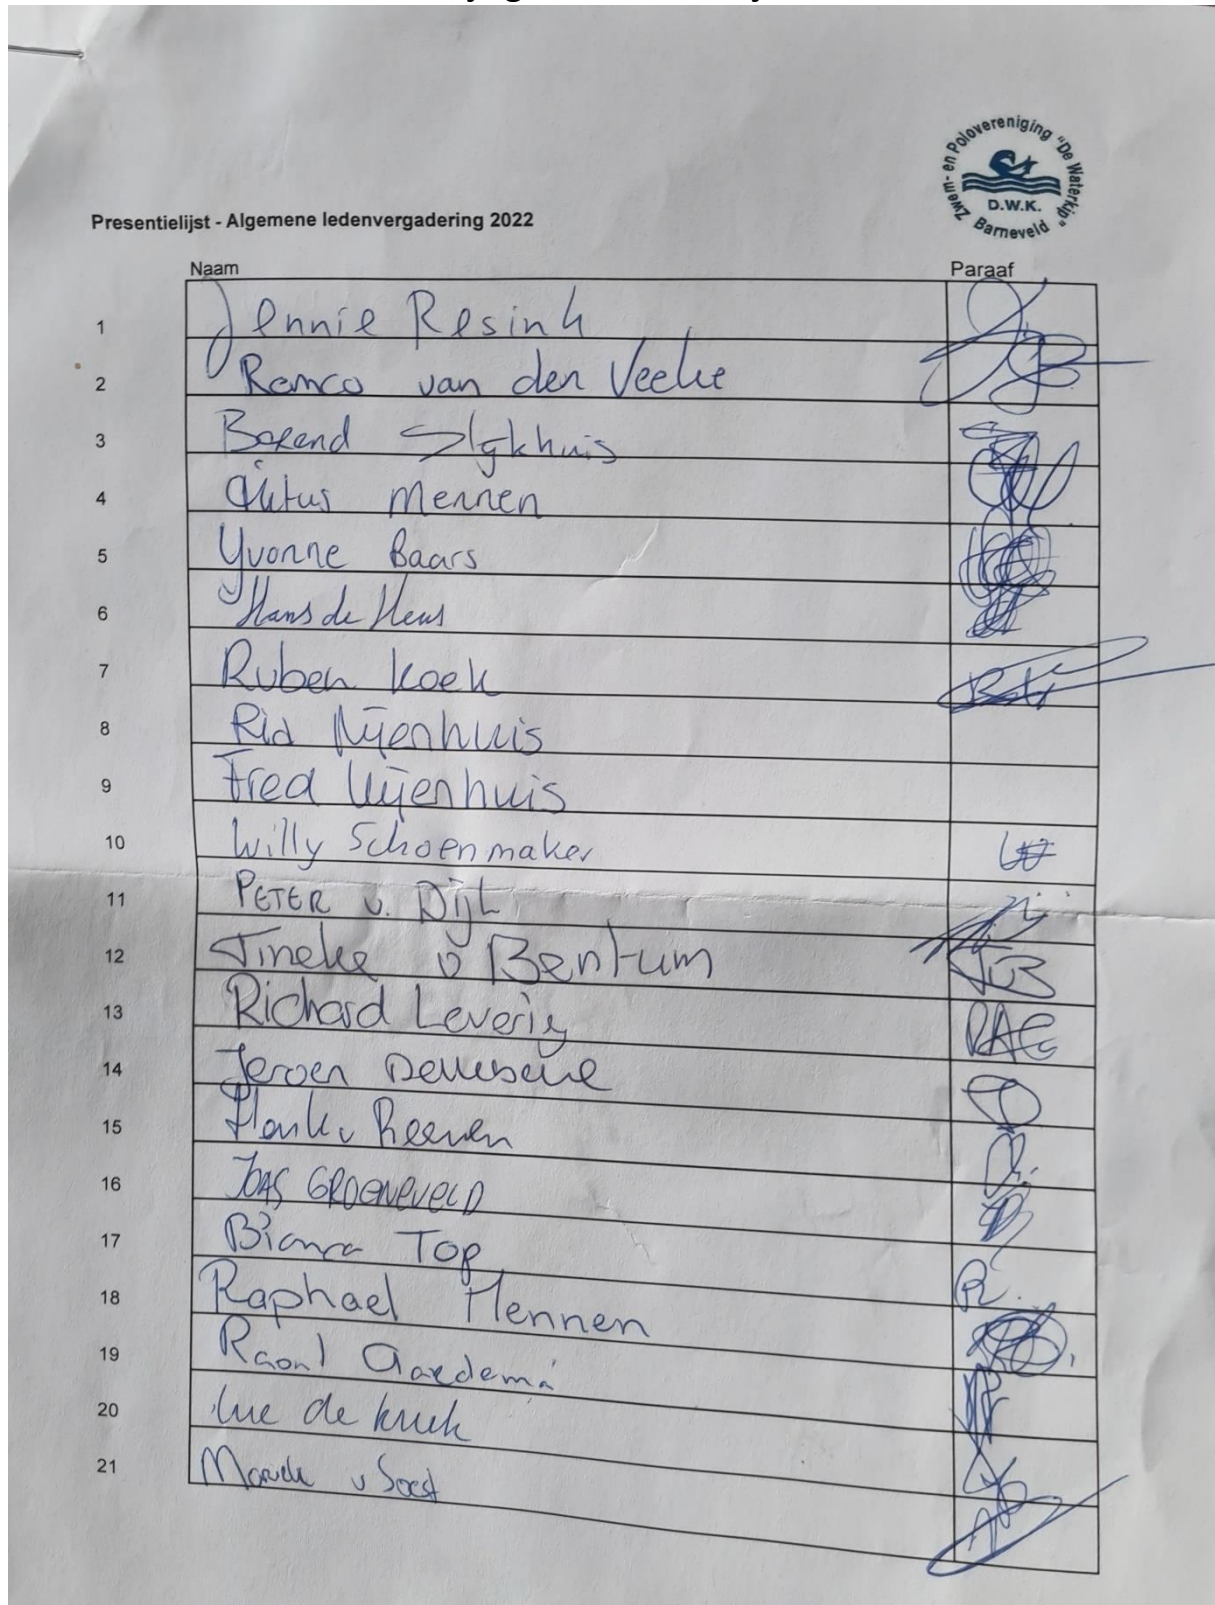 Zwem- en Polovereniging "De Waterkip"
D.W.K.
Barneveld
Presentielijst - Algemene ledenvergadering 2022
Naam Paraaf
1 Jennie Resink
2 Remco van den Veeke
3 Barend Slijkhuis
4 Mennen
5 Yvonne Baars
6 Hans de Heus
7 Ruben Koek
8 Ria Nijenhuis
9 Fred Nijenhuis
10 Willy Schoenmaker
11 PETER v. Dijk
12 Tineke v Bentum
13 Richard Levering
14 Jeroen
15 Henk v Reenen
16 JOAS GROENEVELD
17 Bianca Top
18 Raphael Mennen
19 Raoul Aardema
20 Luc de Kruik
21 v Soest